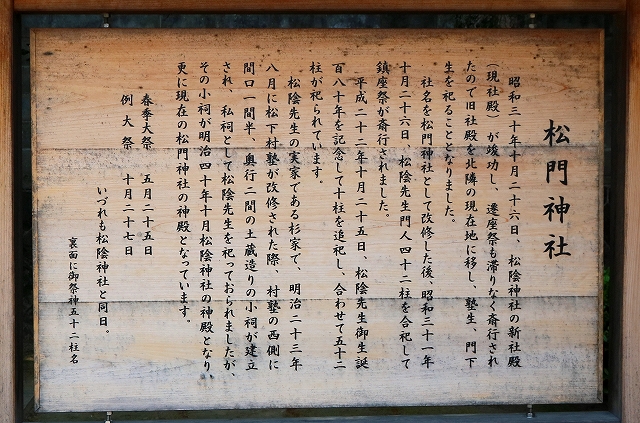 松門神社
昭和三十年十月二十六日、松陰神社の新社殿
（現社殿）が竣功し、遷座祭も滞りなく斎行され
たので旧社殿を北隣の現在地に移し、塾生、門下
生を祀ることとなりました。
社名を松門神社として改修した後、昭和三十一年
十月二十六日、松陰先生門人四十二柱を合祀して
鎮座祭が斎行されました。
平成二十二年十月二十五日、松陰先生御生誕
百八十年を記念して十柱を追祀し、合わせて五十二
柱が祀られています。
松陰先生の実家である杉家で、明治二十三年
八月に松下村塾が改修された際、村塾の西側に
間口一間半、奥行二間の土蔵造りの小祠が建立
され、私祠として松陰先生を祀っておられましたが、
その小祠が明治四十年十月松陰神社の神殿となり、
更に現在の松門神社の神殿となっています。
春季大祭　五月二十五日
例大祭　十月二十七日
いづれも松陰神社と同日。
裏面に御祭神五十二柱名